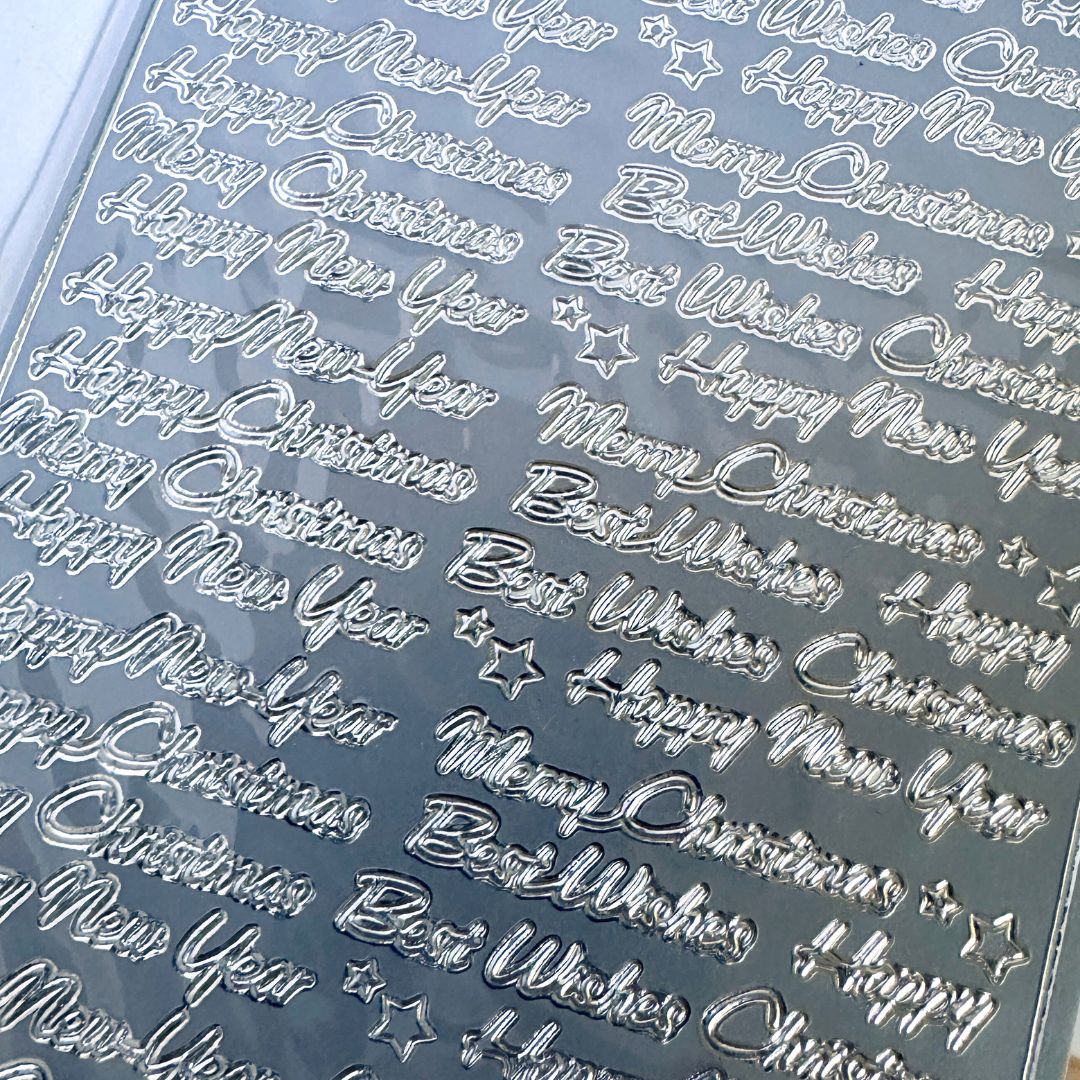 Year Best Wishes
Happy New Year Christmas
Happy Christmas Happy New
Merry Christmas Merry Christmas
Happy New Year Best Wishes
Happy New Year Best Wishes Happy
Happy Christmas Happy New Year Christmas
Merry Christmas Merry Christmas
Happy New Year Best Wishes
Happy New Year Best Wishes Happy
Happy Christmas Happy New Year Christmas
Christmas Merry Christmas
New Year Best Wishes
New Year Best Wishes Happy
Happy Christmas